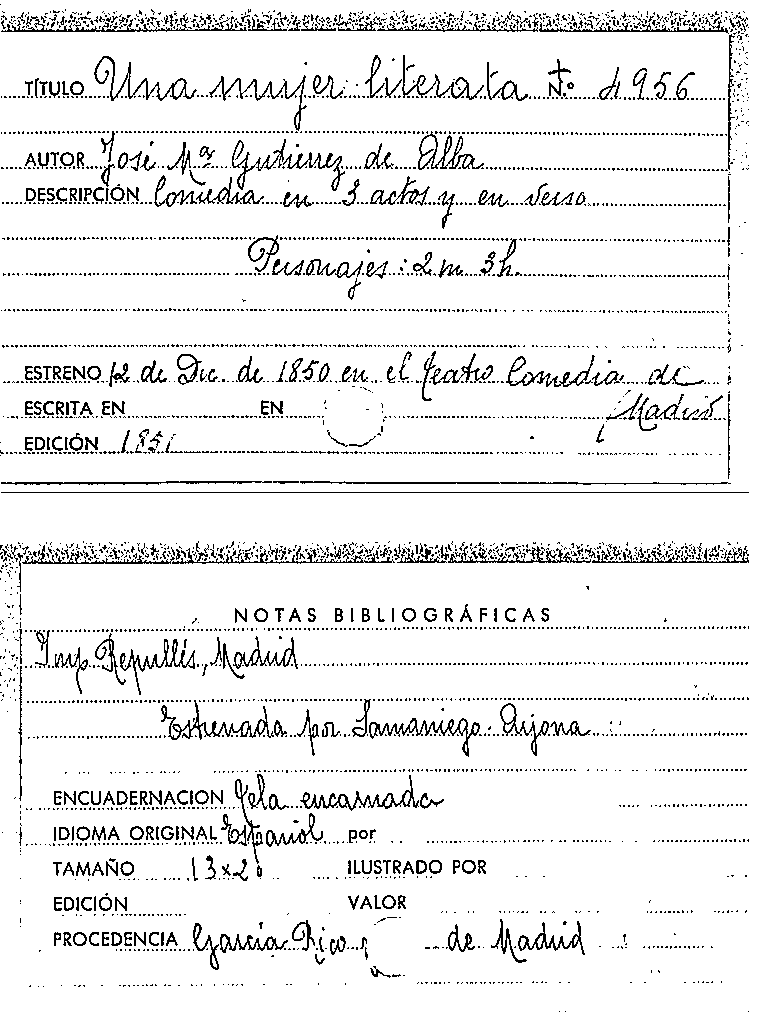 TÍTULO Una mujer literata N.º 4956
AUTOR José Mª Gutiérrez de Alba
DESCRIPCIÓN Comedia en 3 actos y en verso
Personajes: 2 m 3 h.
ESTRENO 12 de Dic. de 1850 en el teatro Comedia de
ESCRITA EN EN Madrid
EDICIÓN 1851
NOTAS BIBLIOGRÁFICAS
Imp. Repullés, Madrid
Estrenada por Samaniego-Arjona
ENCUADERNACION Tela encarnada
IDIOMA ORIGINAL Español por
TAMAÑO 13x20 ILUSTRADO POR
EDICIÓN VALOR
PROCEDENCIA García Rico de Madrid